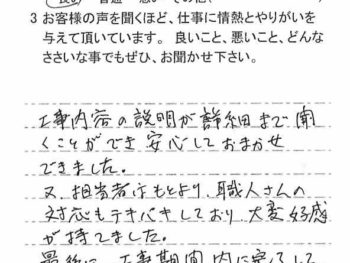 3 お客様の声を聞くほど、仕事に情熱とやりがいを
与えて頂いています。良いこと、悪いこと、どんな
ささいな事でもぜひ、お聞かせ下さい。
工事内容の説明が詳細まで聞
くことができ安心しておまかせ
できました。
又、担当者はもとより、職人さんの
対応もテキパキしており、大変好感
が持てました。
最後に、工事期間内に完了して